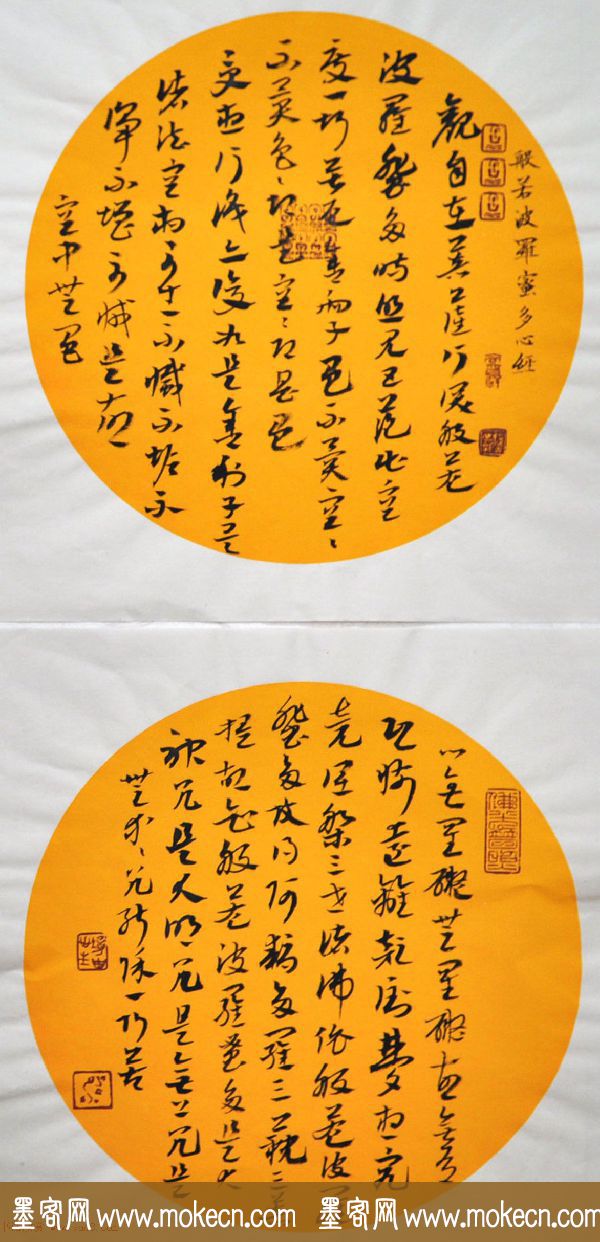 般若波羅蜜多心經
觀自在菩薩行深般若
波羅蜜多時照見五蘊皆空
度一切苦厄舍利子色不異空〻
不異色〻即是空〻即是色
受想行識亦復如是舍利子是
諸法空相不生不滅不垢不
淨不增不減是故
空中無色
心無罣礙無罣礙故無有
恐怖遠離顛倒夢想究
竟涅槃三世諸佛依般若波羅
蜜多故得阿耨多羅三藐三菩
提故知般若波羅蜜多是大
神咒是大明咒是無上咒是
無等〻咒能除一切苦
墨客网 www.mokecn.com 墨客网 www.mokecn.com